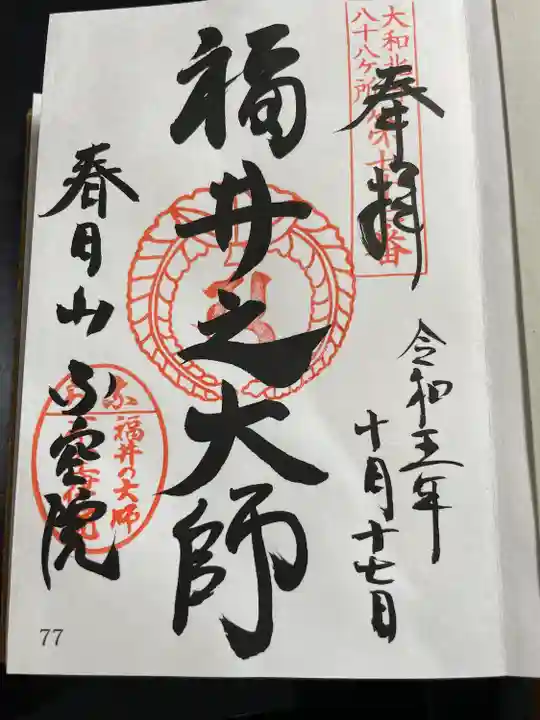 大和北
八十八ヶ所
番
奉拝
令和五年
十月十七日
福井之大師
春日山 不空院
福井の大師
77